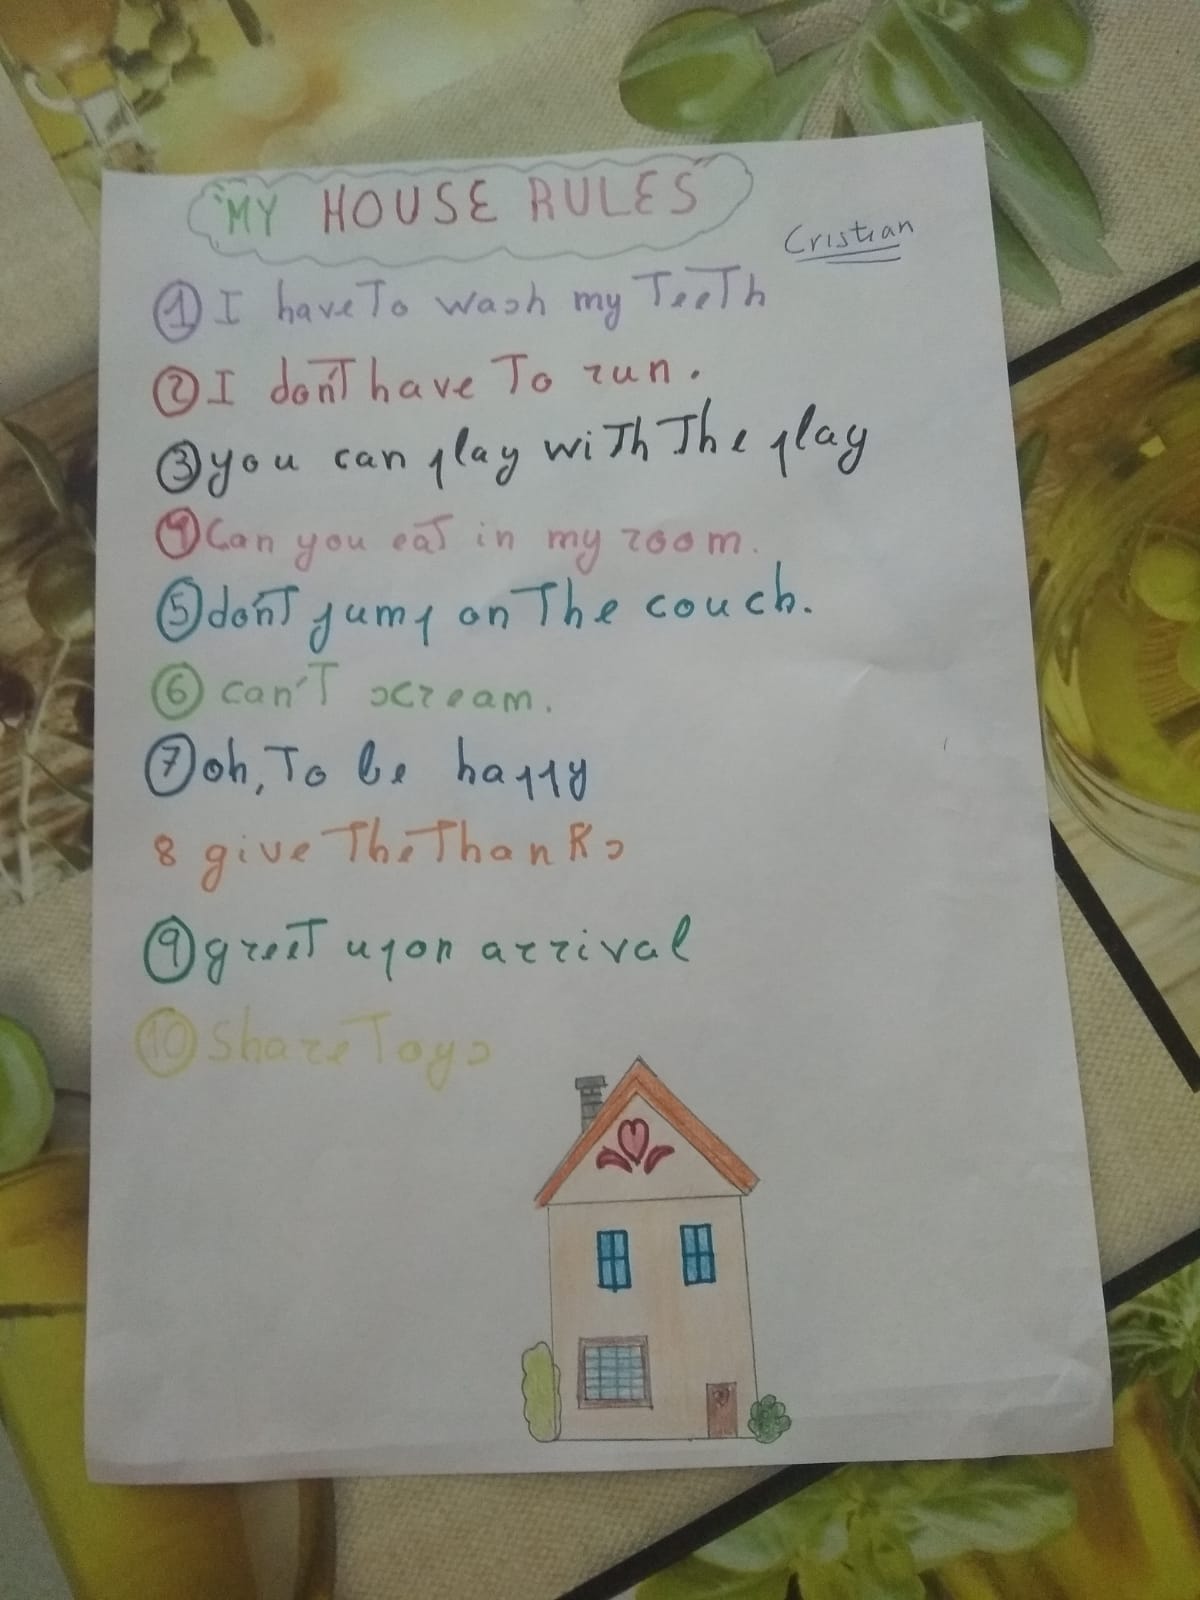 "MY HOUSE RULES"
Cristian
1 I have To wash my TeeTh
2 I don'T have To run.
3 you can play wiTh The play
4 Can you eaT in my room.
5 don'T jump on The couch.
6 can'T scream.
7 oh, To be happy
8 give The Thanks
9 greeT upon arrival
10 Share Toys